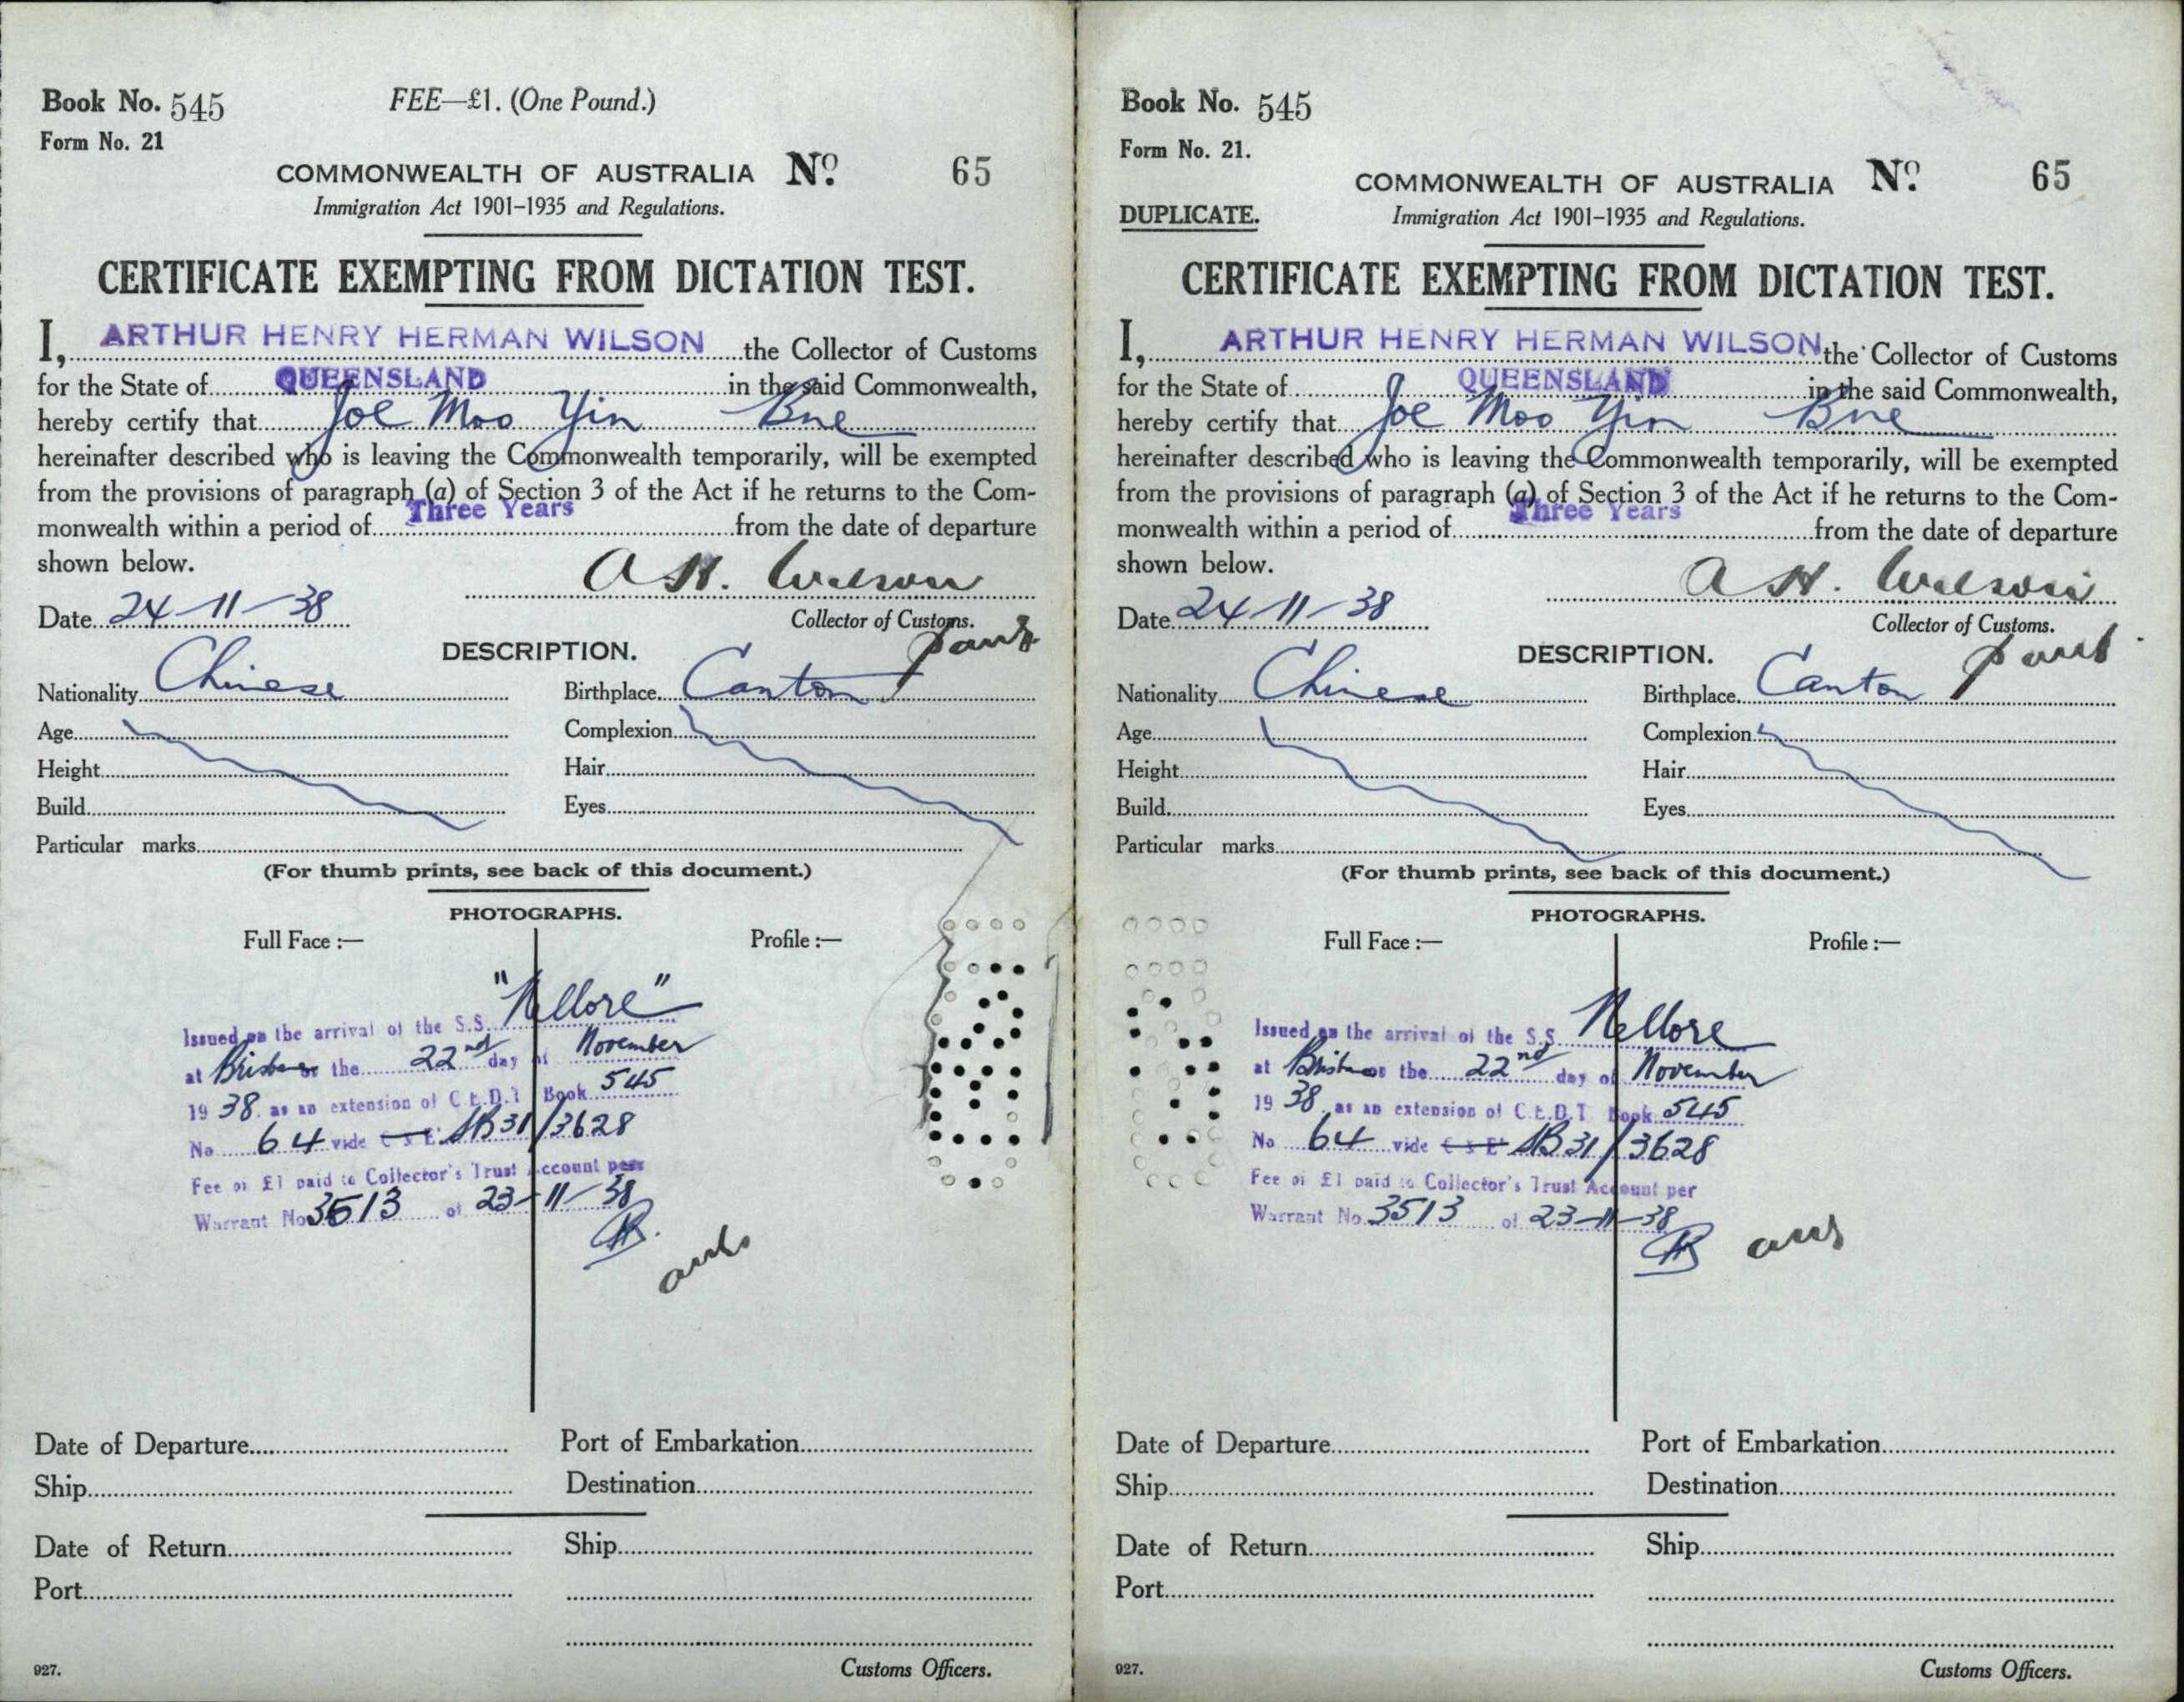 Book No. 545
FEE—£1. (One Pound.)
Form No. 21
COMMONWEALTH OF AUSTRALIA No. 65
Immigration Act 1901–1935 and Regulations.
CERTIFICATE EXEMPTING FROM DICTATION TEST.
I, ARTHUR HENRY HERMAN WILSON the Collector of Customs
for the State of QUEENSLAND in the said Commonwealth,
hereby certify that Joe Moo Yin Bne
hereinafter described who is leaving the Commonwealth temporarily, will be exempted
from the provisions of paragraph (a) of Section 3 of the Act if he returns to the Com-
monwealth within a period of Three Years from the date of departure
shown below.
A H. Wilson
Date 24-11-38
Collector of Customs.
DESCRIPTION.
Nationality Chinese Birthplace Canton
Age Complexion
Height Hair
Build Eyes
Particular marks
(For thumb prints, see back of this document.)
PHOTOGRAPHS.
Full Face :— Profile :—
Issued on the arrival of the S.S. "Nellore"
at Brisbane the 22nd day of November
1938 as an extension of C.E.D.T Book 545
No 64 vide C & E SB31/3628
Fee of £1 paid to Collector's Trust Account per
Warrant No 3513 of 23-11-38
Date of Departure Port of Embarkation
Ship Destination
Date of Return Ship
Port
927. Customs Officers.
Book No. 545
Form No. 21.
COMMONWEALTH OF AUSTRALIA No. 65
DUPLICATE.
Immigration Act 1901–1935 and Regulations.
CERTIFICATE EXEMPTING FROM DICTATION TEST.
I, ARTHUR HENRY HERMAN WILSON the Collector of Customs
for the State of QUEENSLAND in the said Commonwealth,
hereby certify that Joe Moo Yin Bne
hereinafter described who is leaving the Commonwealth temporarily, will be exempted
from the provisions of paragraph (a) of Section 3 of the Act if he returns to the Com-
monwealth within a period of Three Years from the date of departure
shown below.
A H. Wilson
Date 24-11-38
Collector of Customs.
DESCRIPTION.
Nationality Chinese Birthplace Canton
Age Complexion
Height Hair
Build Eyes
Particular marks
(For thumb prints, see back of this document.)
PHOTOGRAPHS.
Full Face :— Profile :—
Issued on the arrival of the S.S. Nellore
at Brisbane the 22nd day of November
1938 as an extension of C.E.D.T Book 545
No 64 vide C & E SB31/3628
Fee of £1 paid to Collector's Trust Account per
Warrant No. 3513 of 23-11-38
Date of Departure Port of Embarkation
Ship Destination
Date of Return Ship
Port
927. Customs Officers.